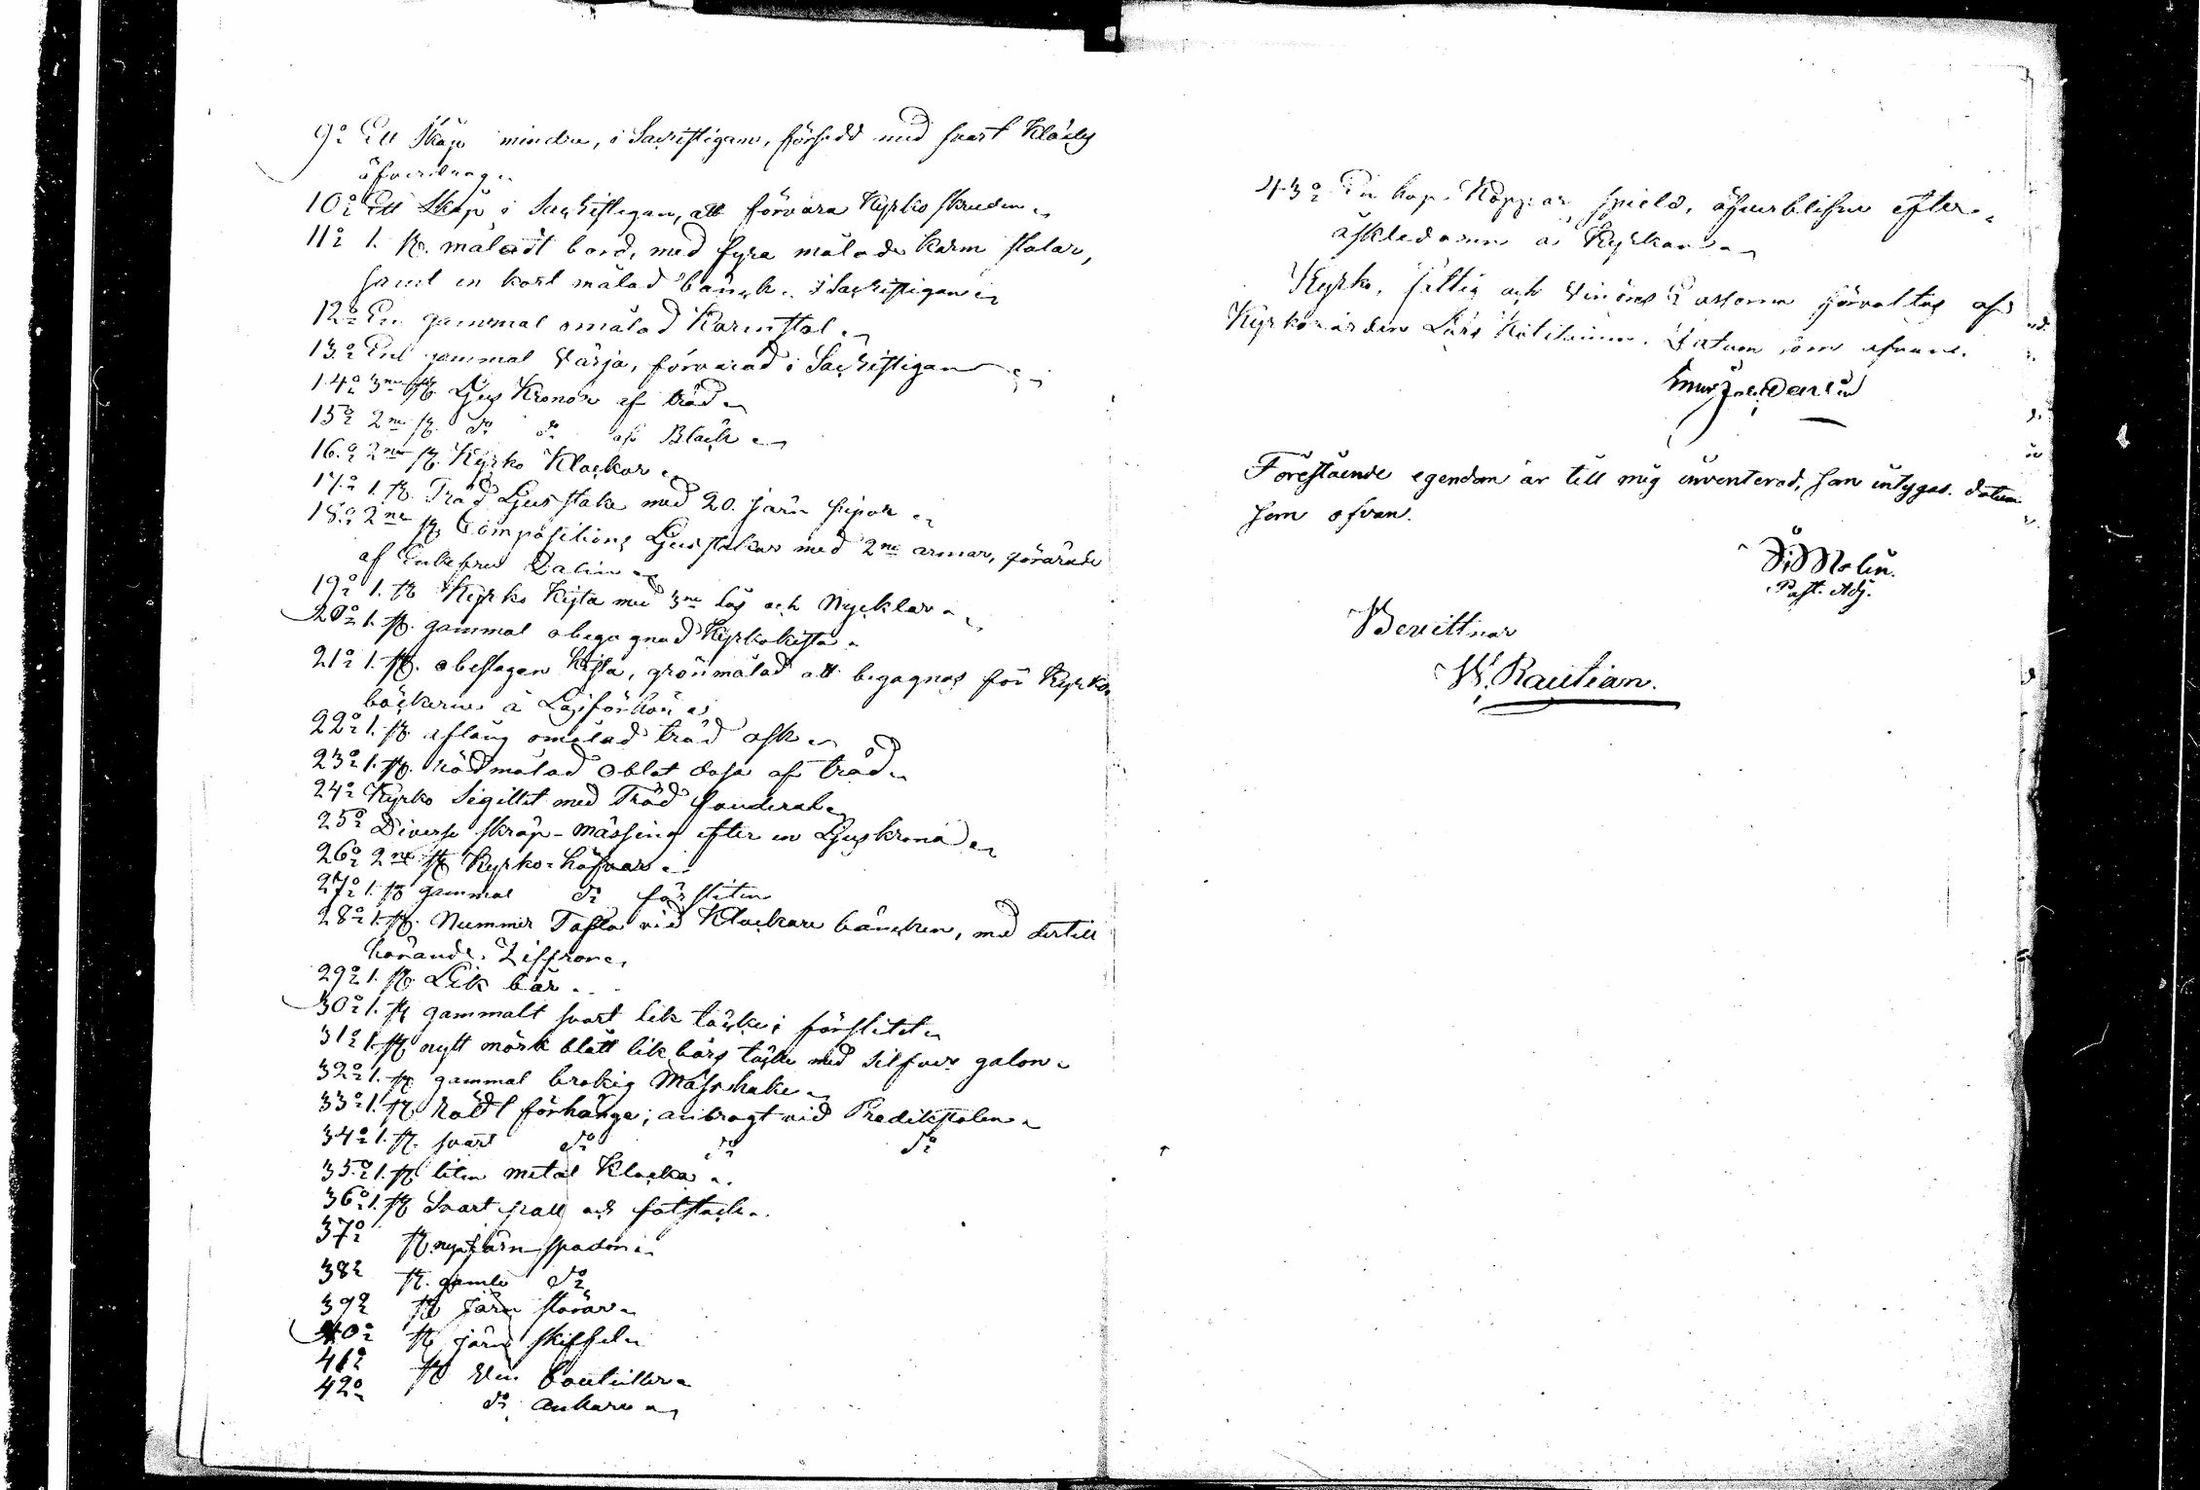 9:o Ett Skåp mindre, i Sacristigan, försedd med svart Klädes
öfverdrag.
10:o Ett Skåp i Sacristigan, att förvara Kyrko skruden
11:o 1. st. måladt bord, med fyra målade Karm stolar,
samt en kort målad bänck i Sacristigan
12:o En gammal omålad Karmstol
13:o En gammal Värja, förvarad i Sacristigan
14:o 3ne st. Ljus Kronor af träd
15:o 2ne st. do do af Bläck
16:o 2ne st. Kyrko Klockor
17:o 1. st. Träd Ljus stake med 20. järn pipor
18:o 2ne st Compositions Ljusstakar med 2ne armar, förärade
af Enkefru Dalin
19:o 1. st Kyrko Kista med 3ne lås och Nycklar
20:o 1. st. gammal obegagnad Kyrkokista
21:o 1. st. obeslagen Kista, grönmålad att begagnas för Kyrko
böckerne å Läsförhör
22:o 1. st. aflång omålad träd ask
23:o 1. st. rödmålad Oblat dosa af träd
24:o Kyrko Sigillet med Träd fouderal
25:o Diverse skräp-mässing efter en Ljuskrona
26:o 2ne st Kyrko-håfvar
27:o 1. st gammal do försliten
28:o 1. st. Nummer Tafla vid Klockare bäncken, med dertill
hörande Ziffror
29:o 1. st Lik bår
30:o 1. st gammalt svart lik täcke; förslitet
31:o 1. st nytt mörk blått lik bårs täcke med silfver galon
32:o 1. st gammal brokig Mässhake
33:o 1. st. rödt förhänge; anbragt vid Predikstolen
34:o 1. st. svart do do do
35:o 1. st. liten metal Klocka
36:o 1. st Svart pall och fotstack
37:o st. nya järn spadar
38:o st. gamla do
39:o st järn störar
40:o st järn skyffel
41:o st Vin bouteiller
42:o do Ankare
43:o En hop Koppar spield, öfverblifven efter
åskledaren å Kyrkan
Kyrko, fattig och Kassorna förvaltas af
Kyrkovärden Lars. Datum som ofvan.
Förestående egendom är till mig inventerad, som intygas. datum
som ofvan.
Molin.
Past. Adj.
Bevittnar
W. Rautian.